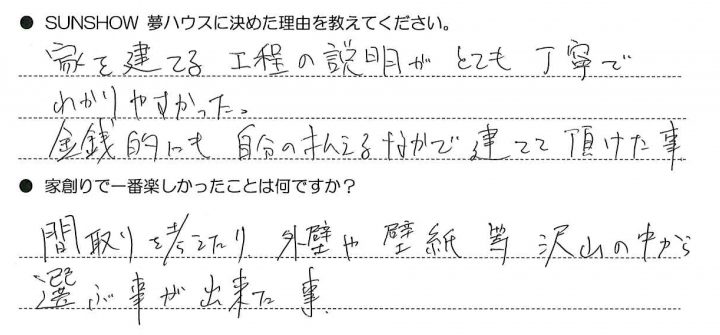 ● SUNSHOW 夢ハウスに決めた理由を教えてください。
家を建てる 工程の説明が とても 丁寧で
わかりやすかった。
金銭的にも 自分の払えるなかで 建てて頂けた事
● 家創りで一番楽しかったことは何ですか？
間取りを考えたり、外壁や 壁紙 等 沢山の中から
選ぶ事が 出来た 事.